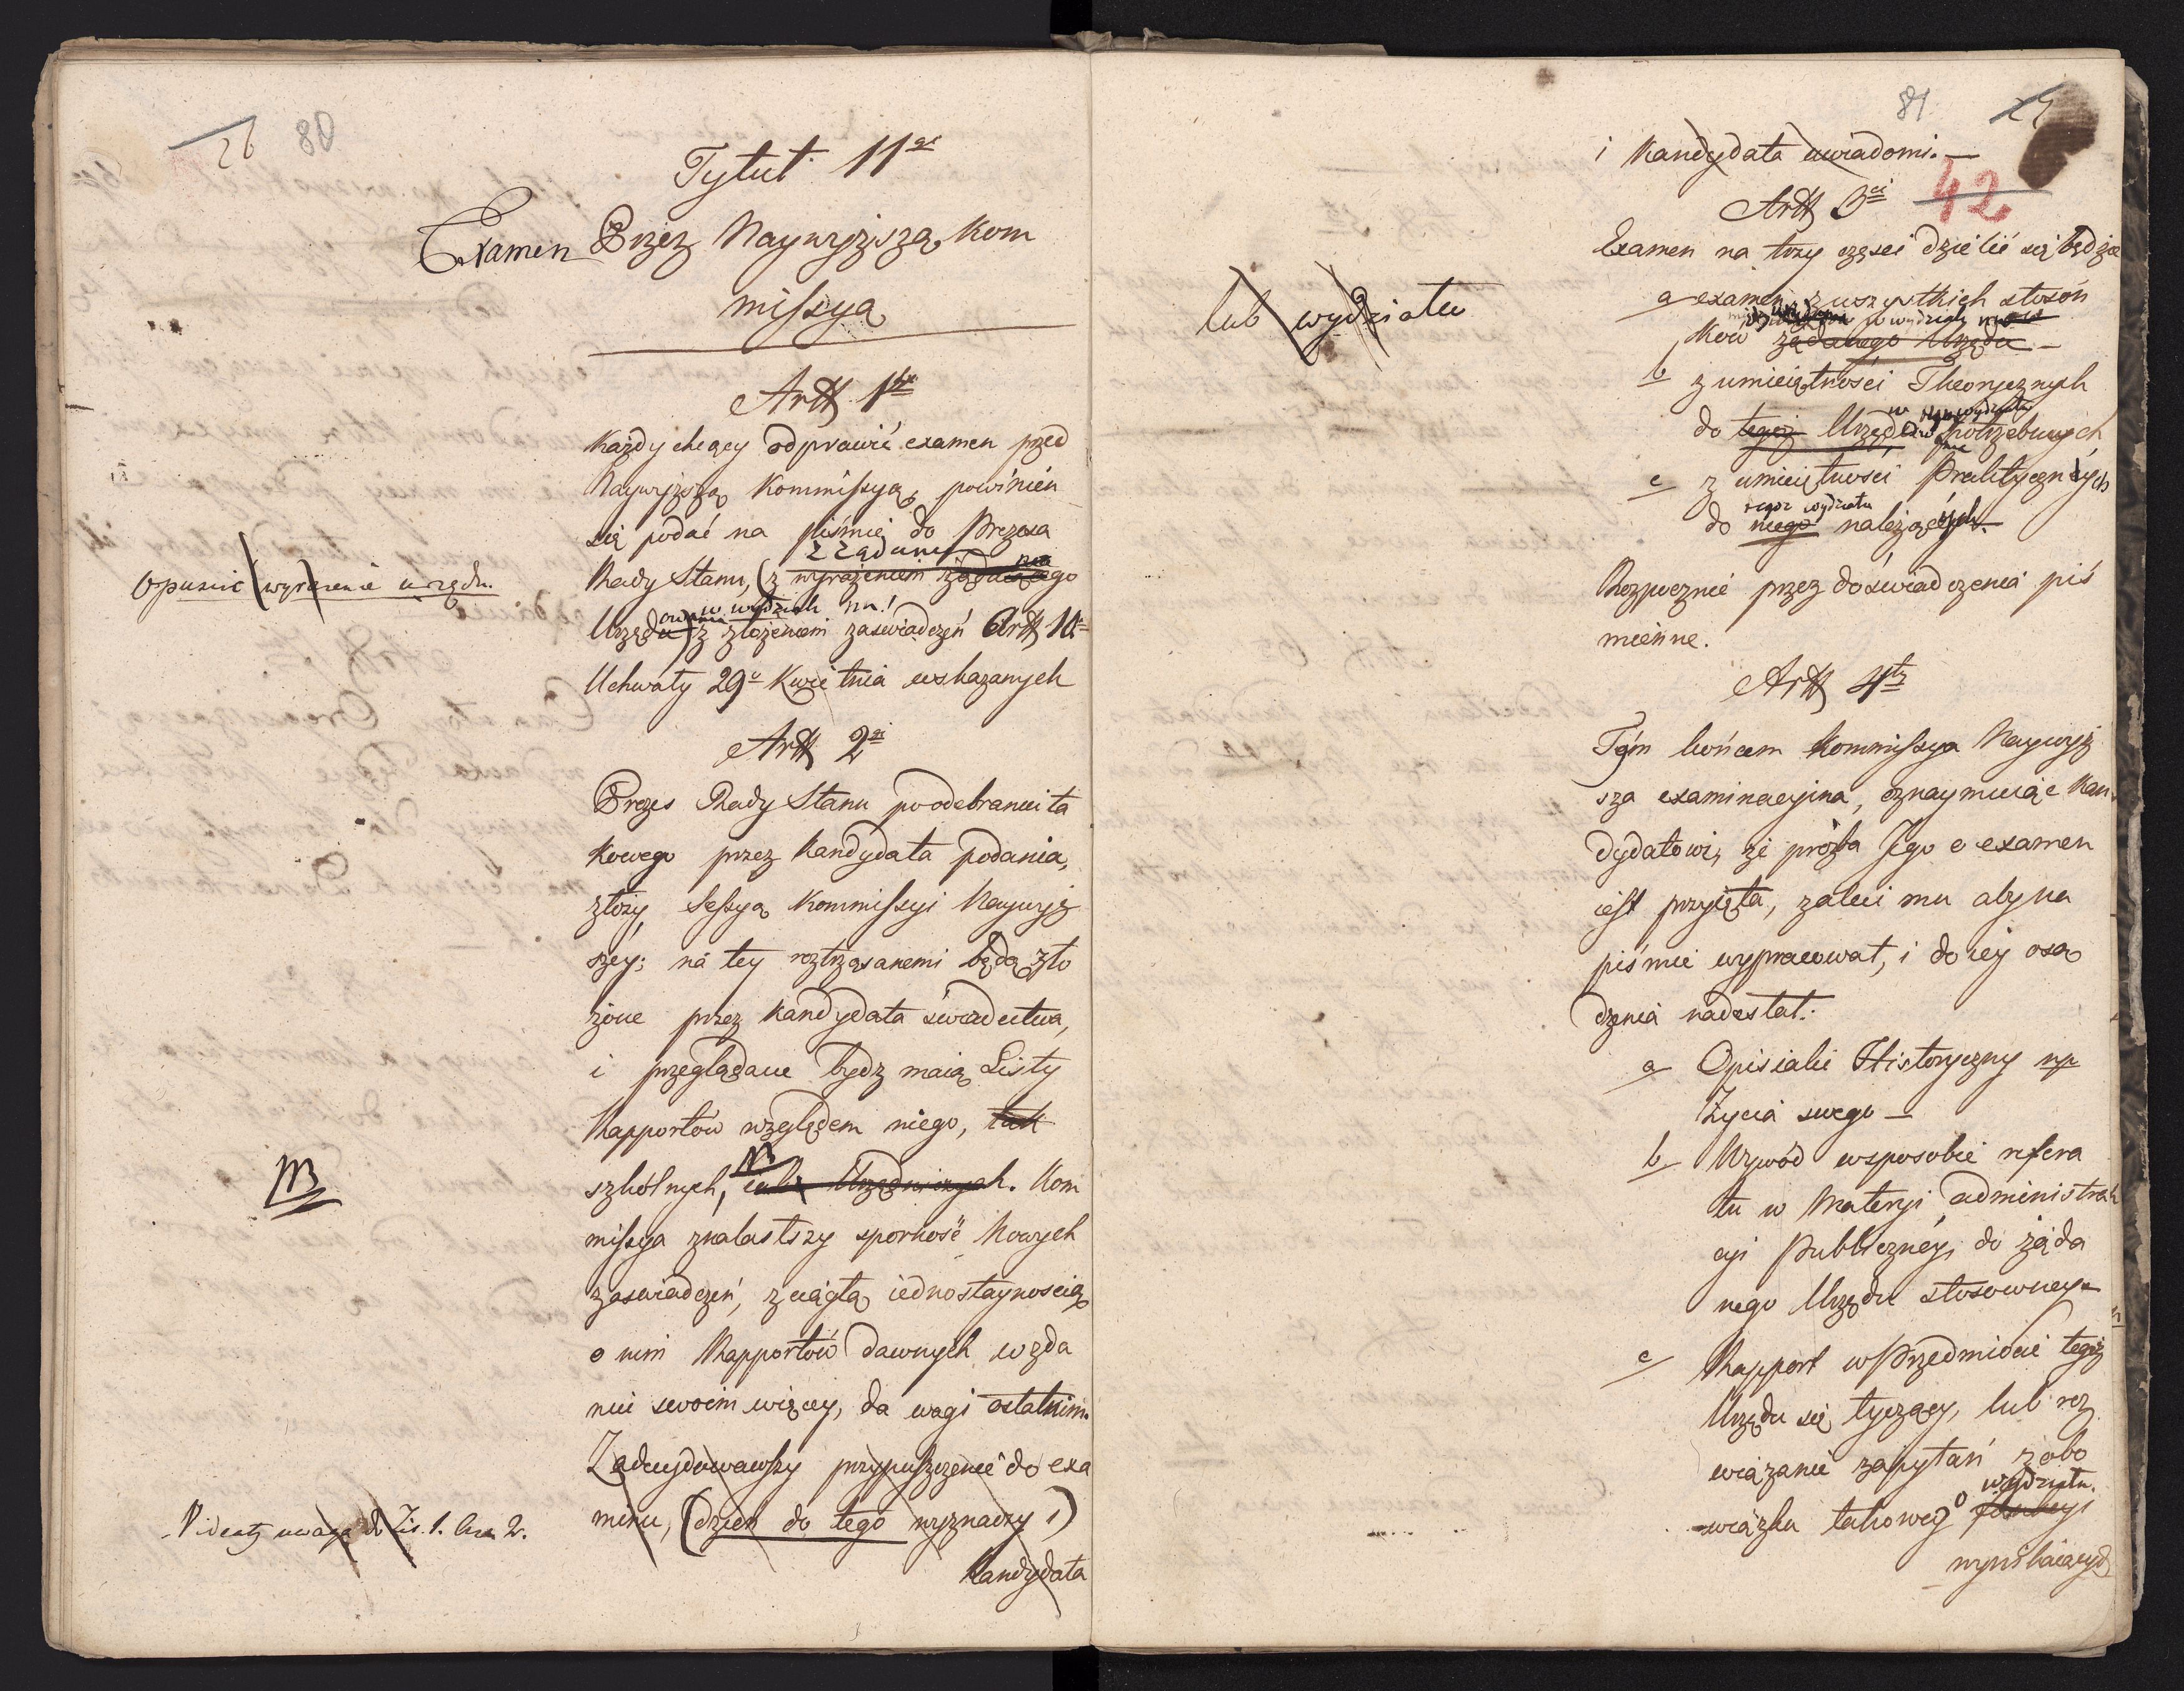 26 80
Tytuł 11gi
Examen Przez Naywyższą Kom
missyą
Artt 1szy
Każdy chcący odprawić examen przed
Naywyższą Kommissyą, powinien
się podać na piśmie do Prezesa
z żądaniem
Rady Stanu, (z wyrażeniem żądanego
opuścić wyrażenie urzędu.
w wydziale
Urzędu) z złożeniem zaświadczeń Artt 10
Uchwały 29o Kwietnia wskazanych
Artt 2gi
Prezes Rady Stanu po odebraniu ta
kowego przez Kandydata podania,
złoży Sessyą Kommissyi Naywyż
széy; na tey roztrząsanemi będą zło
żone przez Kandydata świadectwa,
i przeglądane bydz maią Listy
Rapportów względem niego, tak
NB
szkólnych, iako Urzędniczych. Kom
NB
missya znalastszy sporność Nowych
zaświadczeń, z ciągłą iednostaynością
o nim Rapportów dawnych w zda
niu swoim więcey, da wagi ostatnim.
Zadecydowawszy przypuszczenie do exa
minu, (dzień do tego wyznaczy i)
Videatz uwaga do Lit. 1. 2.
Kandydata
81
i Kandydata uwiadomi. —
42
Artt 3ci
Examen na trzy części dzielić się będzie
a examen z wszystkich stosón
w wydziale
ków żądanego Urzędu —
lub wydziału
b z umieiętności Theorycznych
do tegoż Urzędu potrzebnych
c z umieiętności Praktycznych
tegoż wydziału
do niego należących. —
Rozpocznie przez doświadczenia piś
mienne.
Artt 4ty
Tym końcem Kommissya Naywyż
sza examinacyina, oznaymuiąc Kan
dydatowi, że prożba Jego o examen
iest przyięta, zaleci mu aby na
piśmie wypracował, i do iéy osą
dzenia nadesłał:
a Opis iaki Historyczny np
Życia swego —
b Wywód w sposobie refera
tu w Materyi administra
cyi Publiczney, do żąda
nego Urzędu stosowney —
c Rapport w Przedmiocie tegoż
Urzędu się tyczący, lub roz
wiązanie zapytań z obo
wydziału.
wiązku takowego
wynikaiących